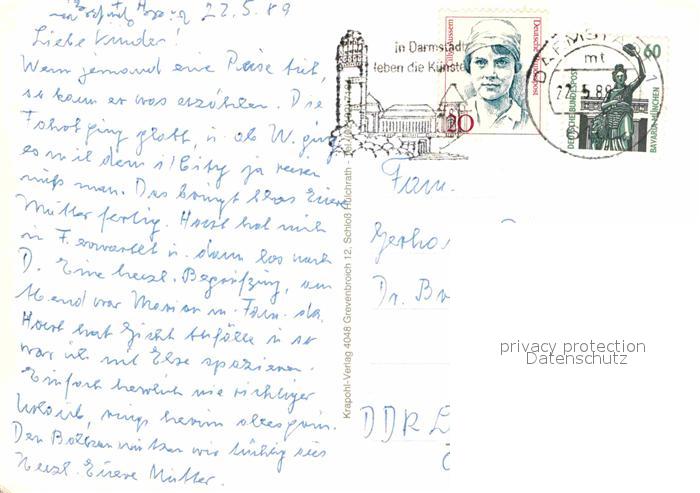 22.5.89
Liebe Kinder!
Wenn jemand eine Reise tut,
so kann er was erzählen. Die
Fahrt ging glatt, u. ab W. ging
es mit dem City ja reisen
muß man. Das bringt bloss Eure
Mutter fertig. Horst hat mich
in F. erwartet u. dann los nach
D. Eine herzl. Begrüßung, am
Abend war Marion m. Fam. da.
Horst hat Gicht Anfälle u. so
war ich mit Else spazieren.
Einfach herrlich wie richtiger
Urlaub, rings herum alles grün.
Den Balkon nutzen wir tüchtig aus
Herzl. Eure Mutter.
Krapohl-Verlag 4048 Grevenbroich 12, Schloß Hülchrath
in Darmstadt
leben die Künste
Deutsche Bundespost
20
60
DEUTSCHE BUNDESPOST
BAVARIA MÜNCHEN
DARMSTADT 1
mt
22.5.89
Fam.
Gerha
Dr. Br
DDR L
privacy protection
Datenschutz